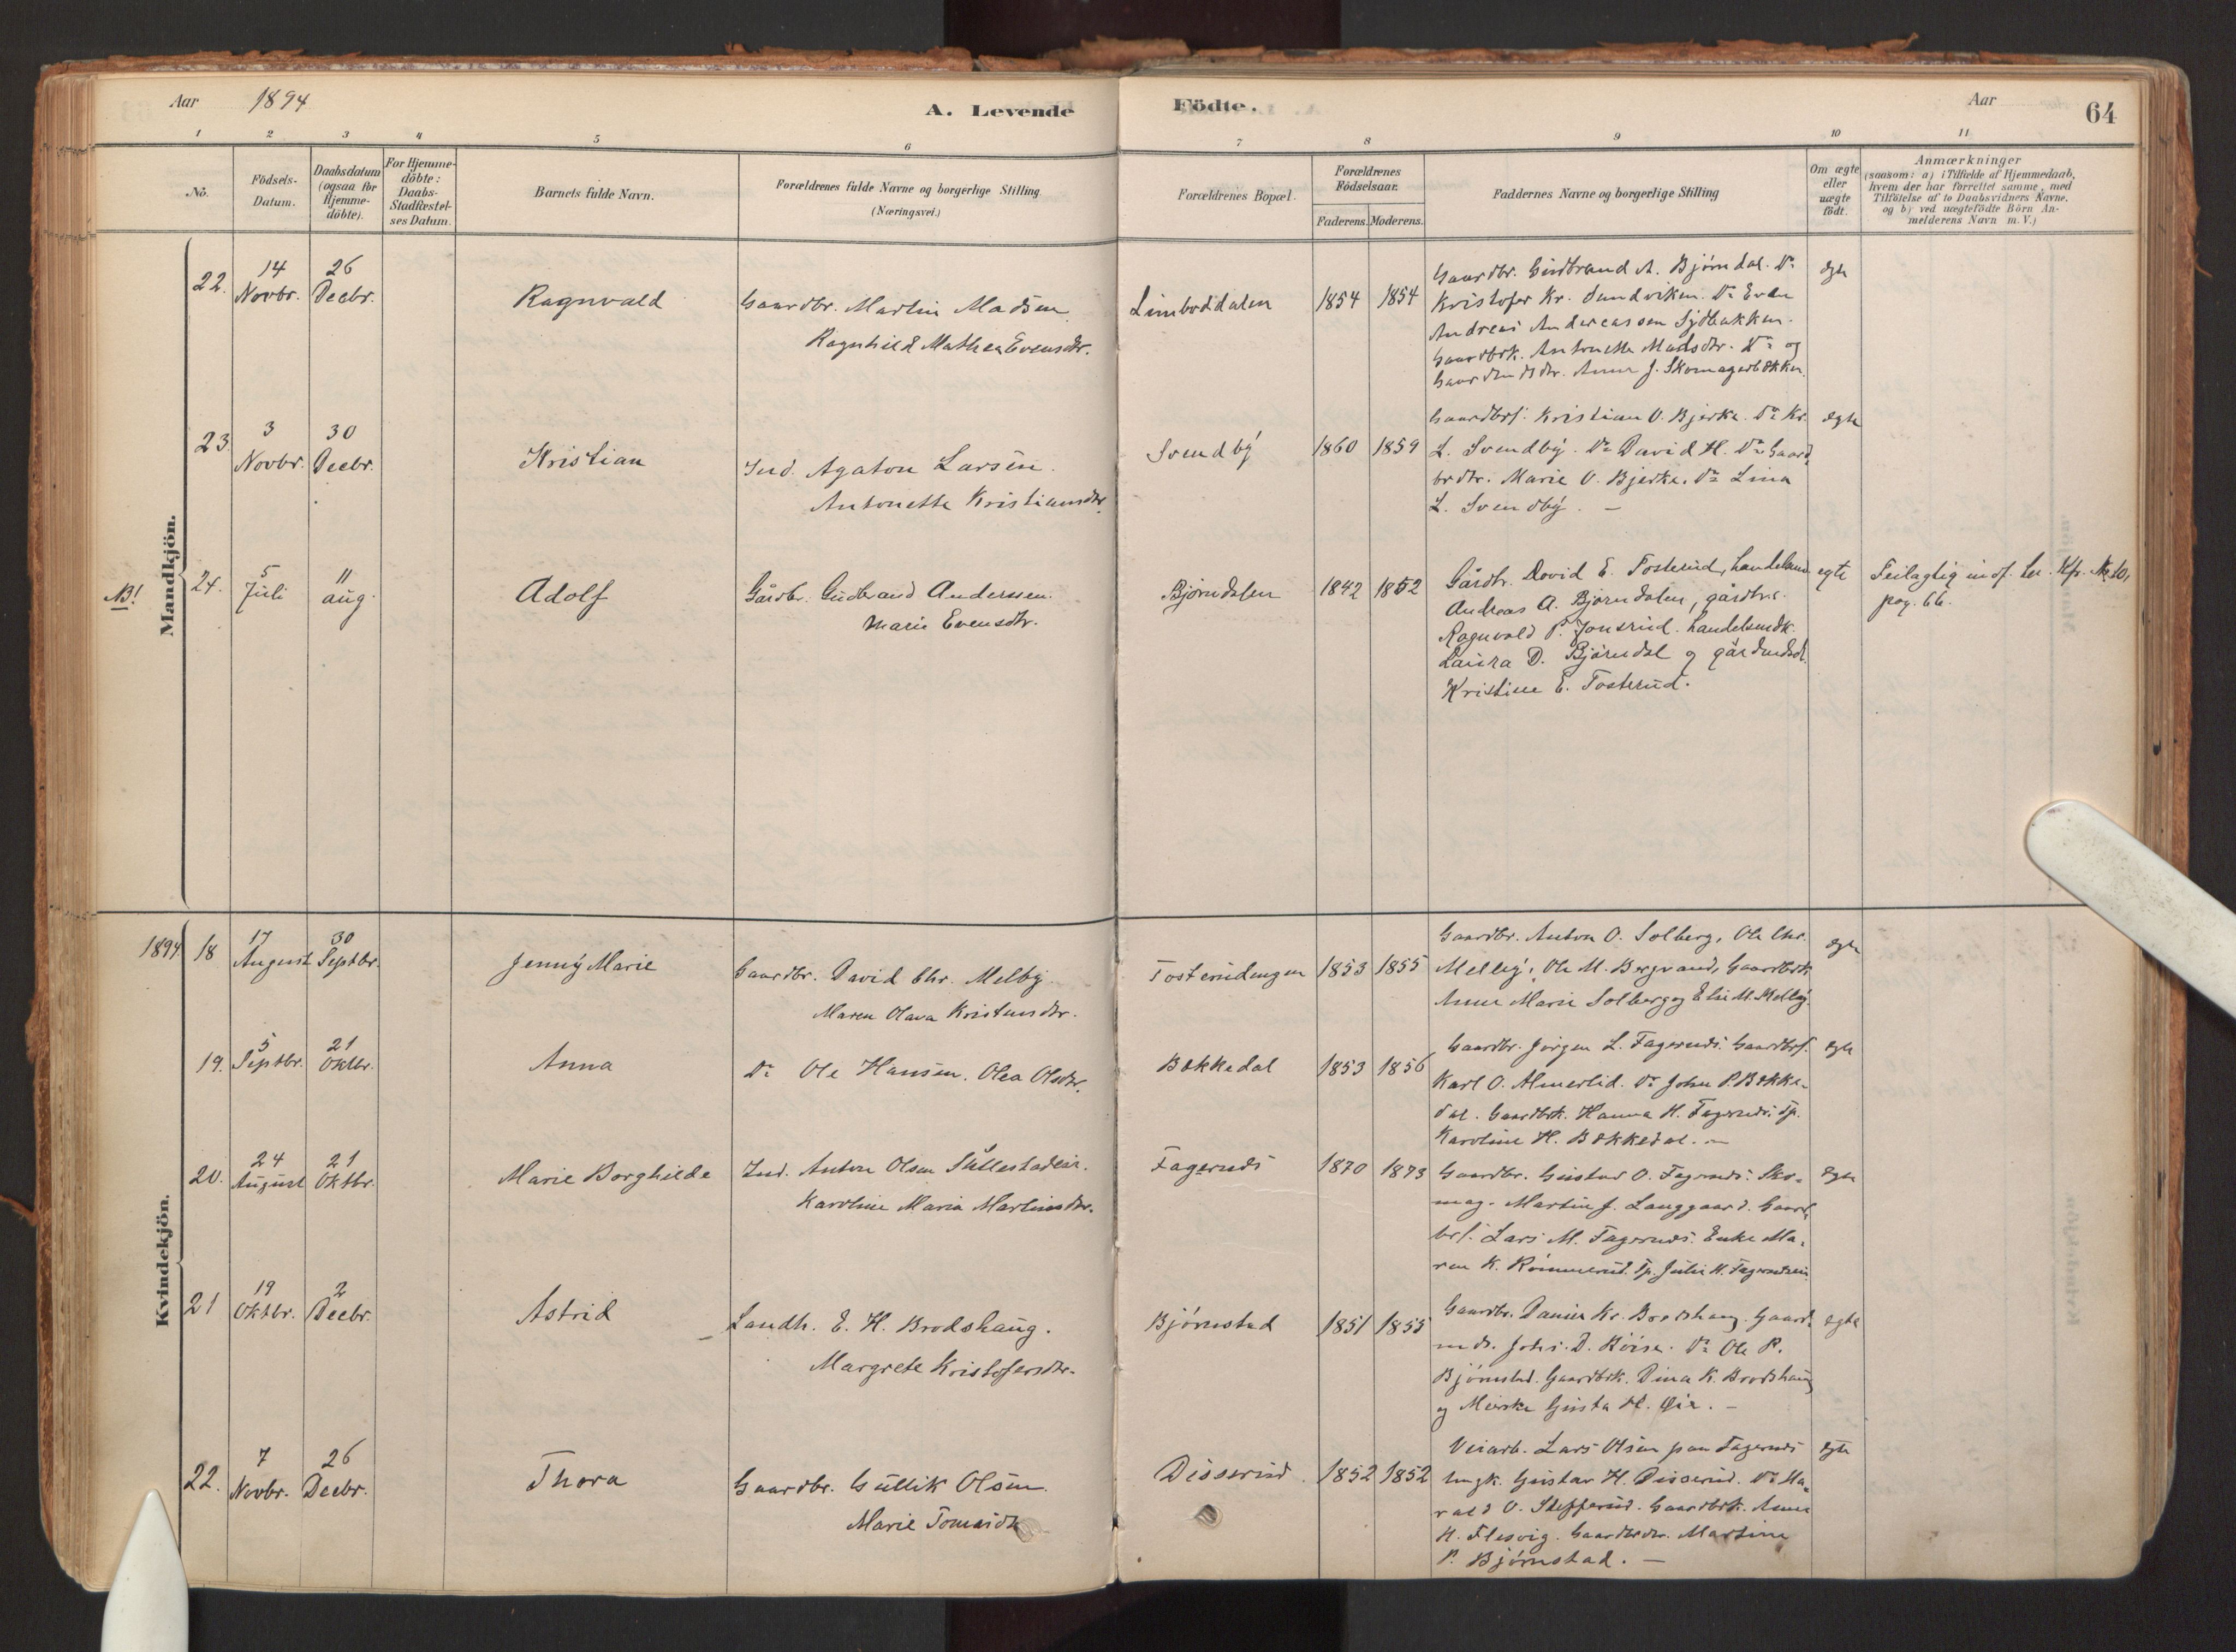 Aar 1894
A. Levende
Födte.
Aar
64
1 2 3 4 5 6 7 8 9 10 11
No.
Födsels-
Datum.
Daabsdatum
(ogsaa för
Hjemme-
döbte).
For Hjemme-
döbte:
Daabs-
Stadfæstel-
ses Datum.
Barnets fulde Navn.
Forældrenes fulde Navne og borgerlige Stilling
(Næringsvei.)
Forældrenes Bopæl.
Forældrenes
Födselsaar.
Faderens. Moderens.
Faddernes Navne og borgerlige Stilling
Om ægte
eller
uægte
födt.
Anmærkninger
(saasom: a) i Tilfælde af Hjemmedaab,
hvem der har forrettet samme, med
Tilföielse af to Daabsvidners Navne.
og b) ved uægtefödte Börn An-
melderens Navn m. V.)
Mandkjön.
22. 14 Novbr. 26 Decbr.
Ragnvald
Gaardbr. Martin Madsen
Ragnhild Mathea Evensdtr.
Limboddalen
1854 1854
Gaardbr. Gudbrand A. Bjørndal. Do
Kristofer Kr. Sundviken. Do Even
Andreas Andreassen Sydbakken.
Gaardbrk. Antonette Madsdtr. Do og
Gaardmdsdtr. Anne J. Skomagerbakken.
egte
23. 3 Novbr. 30 Decbr.
Kristian
Ind. Agaton Larsen.
Antonette Kristiansdtr.
Svendby
1860 1859
Gaardbrs. Kristian O. Bjerke. Do Kr.
L. Svendby. Do David H. Do Gaard
brdtr. Marie O. Bjerke. Do Lina
L. Svendby. —
egte
NB!
24. 5 Juli 11 aug.
Adolf
Gårdbr. Gudbrand Anderssen.
Marie Evensdtr.
Bjørndalen
1842 1852
Gårdbr. David E. Tosterud, handelsmd
Andreas A. Bjørndalen, gårdbrs.
Ragnvald P. Jonsrud. handelsmdk.
Laura D. Bjørndal og gårdmdsdt.
Kristine E. Tosterud.
egte
Feilagtig indf. pag. 66.
Kvindekjön.
1894 18 17 August 30 Septbr.
Jenny Marie
Gaardbr. David Chr. Melby.
Maren Olava Kristensdtr.
Tosterudengen
1853 1855
Gaardbr. Anton O. Solberg, Ole Chr.
Melby, Ole M. Bergvand, Gaardbrk
Anne Marie Solberg og Elie M. Melby.
egte
19. 5 Septbr. 21 Oktbr.
Anna
Do Ole Hansen. Olea Olsdtr.
Bekkedal
1853 1856
Gaardbr. Jørgen L. Fagernds. Gaardbrs.
Karl O. Almerlid. Do John P. Bekke-
dal. Gaardbrk. Hanna H. Fagernds. Tp.
Karoline H. Bekkedal. —
egte
20. 24 August 21 Oktbr.
Marie Borghilde
Ind. Anton Olsen Sullestadeie.
Karoline Maria Martinsdtr.
Fagernds
1870 1873
Gaardbr. Gustav O. Fagernds. Sko-
mag. Martin J. Langgaard. Gaard
brs. Lars M. Fagernds. Enke Ma-
ren K. Rømmerud. Tp. Julie H. Fagerndseie
egte
21 19 Oktbr. 2 Decbr.
Astrid
Landh. E. H. Brodshaug.
Margrete Kristofersdtr.
Bjørnstad
1851 1855
Gaardbr. Daniel Kr. Brodshaug. Gaard-
mds. Johs. D. Röise. Do Ole P.
Bjørnstad. Gaardbrk. Dina K. Brodshaug
og Meierske Gusta H. Øie. —
egte
22. 7 Novbr. 26 Decbr.
Thora
Gaardbr. Gullik Olsen.
Marie Tomasdtr.
Disserud.
1852 1852
Veiarb. Lars Olsen paa Fagernds
Ungk. Gustav H. Disserud. Do Ha-
rald O. Skefferud. Gaardbrk. Anne
H. Flesvig. Gaardbrdtr. Martine
P. Bjørnstad. —
egte